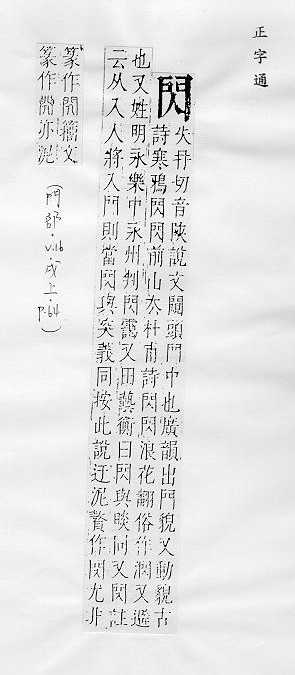 正字通
閃
失冉切音陝說文闚頭門中也廣韻出門貌又動貌古
詩寒鴉閃閃前山去杜甫詩閃閃浪花翻俗作又避
也又姓明永樂中永州判閃靄又田藝衡曰閃與睒同又閃註
云从人將入門則當閃與突義同按此說迂泥贅作閃尤非
篆作籀文
篆作亦泥
(門部 V.11b 戌上 p.64)